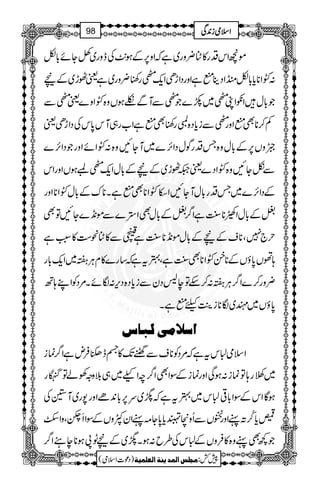 اسلامی زندگی 98
مونچھ اس قدر کاٹنا ضروری ہے کہ اوپر کے ہونٹ کی ڈوری کھل جائے بالکل
نہ کٹوانا یا بالکل منڈا دینا منع ہے اور داڑھی ایک مٹھی رکھنا ضروری ہے یعنی ٹھوڑی کے نیچے کے
بال جو مٹھی میں پکڑے جو مٹھی سے آگے نکلے ہوں وہ کٹوا دے یعنی ایک مٹھی سے
کم کرنا بھی منع اور مٹھی سے زیادہ لمبی رکھنا بھی منع ہے اب رہی آس پاس کی داڑھی یعنی
جو جبڑوں پر کے بال وہ جس قدر گول دائرے میں آ جائیں وہ نہ کٹوائے اور جو دائرے
سے نکل جائیں وہ کٹوا دے یعنی جبکہ ٹھوڑی کے نیچے کے بال ایک مٹھی لمبے ہوں اور اس
کے دائرے میں جس قدر بال آ جائیں اسکا کٹوانا بھی منع ہے۔ ناک کے بال کٹوانا اور
بغل کے بال اکھیڑنا سنت ہے اگر بغل کے بال بھی استرے سے مونڈے جائیں تو بھی
حرج نہیں، ناف کے نیچے کے بال مونڈنا سنت ہے قینچی سے کاٹنا نحوست کا سبب ہے
ہاتھوں پاؤں کے ناخن کٹوانا بھی سنت ہے، بہتر یہ ہے کہ سارے کام ہر ہفتہ میں ایک بار
ضرور کرے اگر ہر ہفتہ نہ کر سکے تو چالیس دن سے زیادہ دیر نہ لگائے۔ مرد کو اپنے ہاتھ
پاؤں میں مہندی لگانا زینت کیلئے منع ہے۔
اسلامی لباس
اسلامی لباس یہ ہے کہ مرد کو ناف سے گھٹنے تک کا جسم ڈھکنا فرض ہے اگر نماز
میں کھلا رہا تو نماز نہ ہوگی اور نماز کے سوا بھی اگر چہ اکیلے میں ہی بلا وجہ کھولے تو گنہگار
ہوگا اس کے سوا باقی لباس میں بہتر یہ ہے کہ پگڑی سر پر باندھے اور پوری آستین کی
قمیص یا کرتہ پہنے اور ٹخنوں سے اونچا تہبند یا پاجامہ پہنے ان کپڑوں کے سوا اچکن، واسکٹ،
جو کچھ بھی پہنے وہ کافروں کے لباس کی طرح نہ ہو۔ پگڑی کے نیچے ٹوپی ہونا چاہئے اگر
پیش کش: مجلس المدینۃ العلمیۃ (دعوتِ اسلامی)